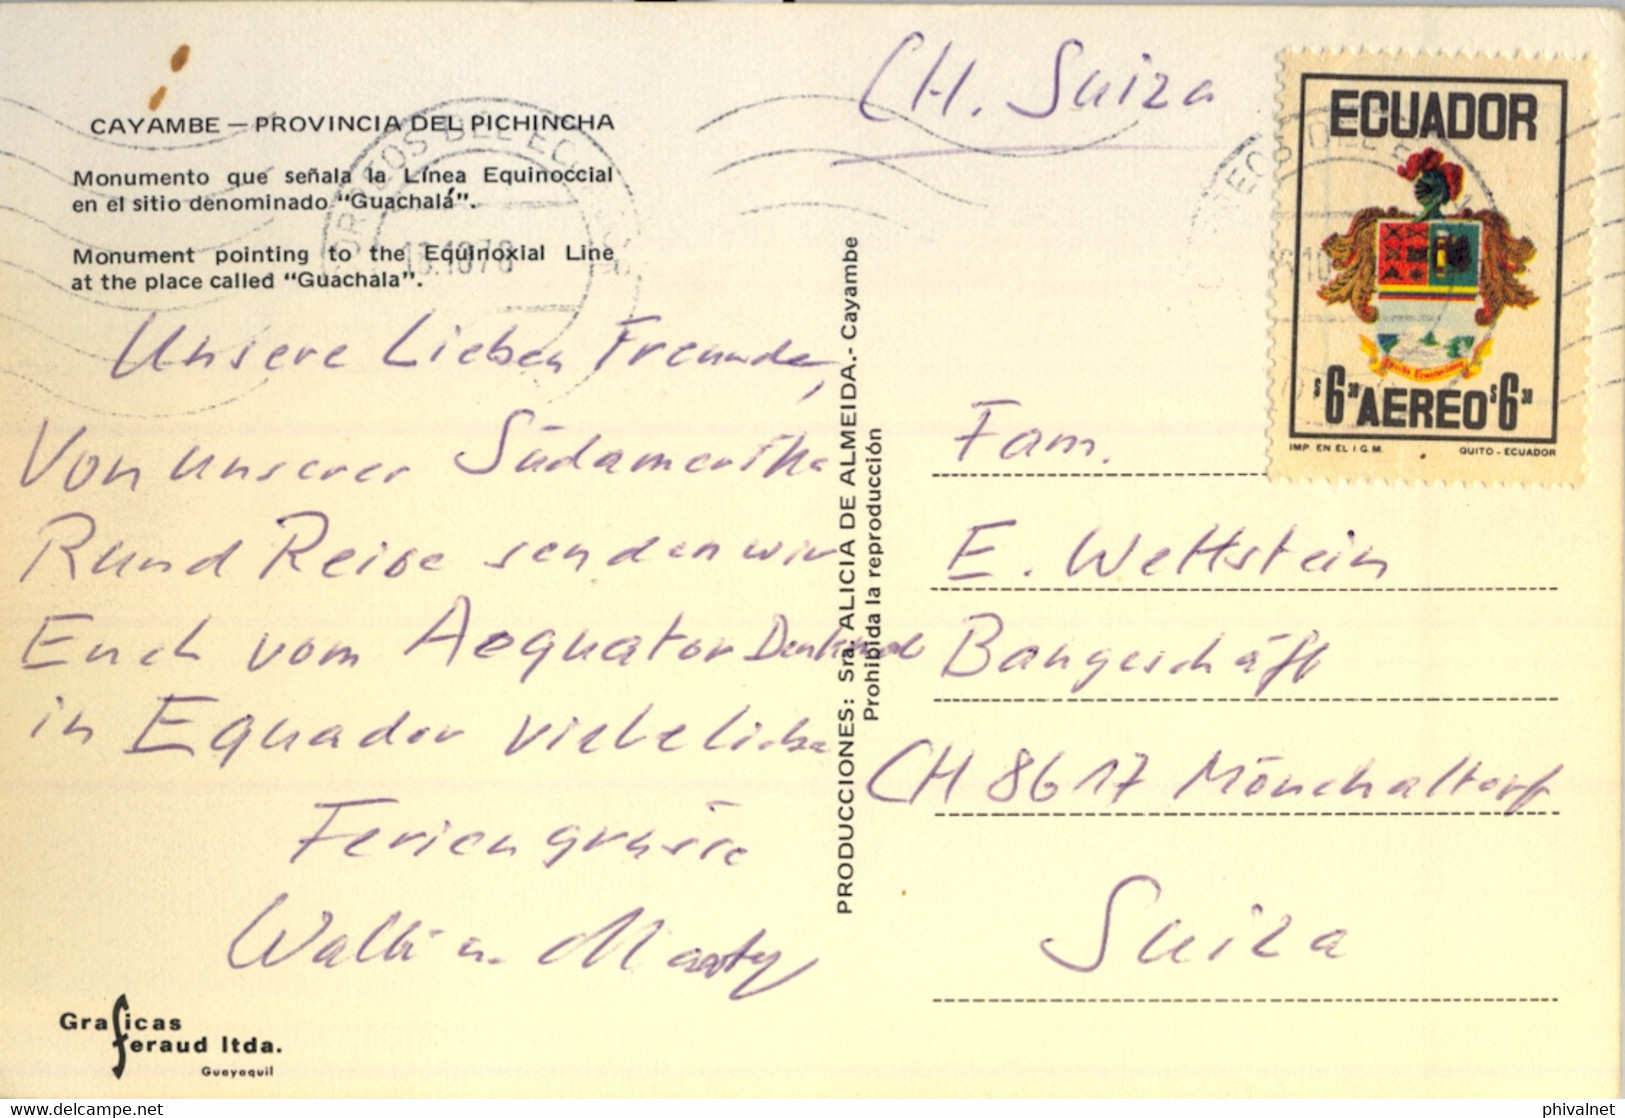 CAYAMBE — PROVINCIA DEL PICHINCHA
Monumento que señala la Línea Equinoccial
en el sitio denominado "Guachalá".
Monument pointing to the Equinoxial Line
at the place called "Guachala".
Unsere Lieben Freunde,
Von unserer Südamerika
Rund Reise senden wir
Euch vom Aequator Denkmal
in Equador viele liebe
Feriengrüsse
Walti u. Maaty
Graficas
feraud ltda.
Guayaquil
PRODUCCIONES: Sra: ALICIA DE ALMEIDA.- Cayambe
Prohibida la reproducción
CH. Suiza
ECUADOR
$6.30 AEREO $6.30
IMP. EN EL I.G.M. QUITO - ECUADOR
Fam.
E. Wettstein
Baugeschäft
CH 8617 Mönchaltorf
Suiza
delcampe.net
phivalnet